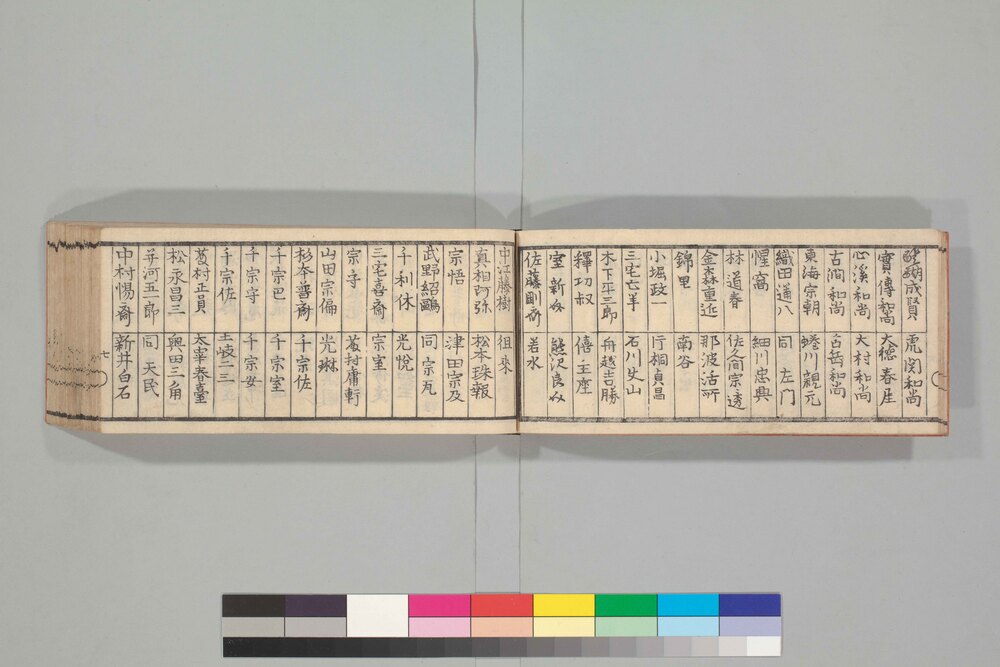 成賢 虎関和尚
實傳和尚 大徳春屋
心溪和尚 大村和尚
古澗和尚 古岳和尚
東海宗朝 蜷川親元
織田道八 同左門
惺窩 細川忠興
林道春 佐久間宗透
金森重近 那波活所
錦里 南谷
小堀政一 片桐貞昌
三宅亡羊 石川丈山
木下平三郎 舟越吉勝
釋功叔 僖首座
室新助 熊沢良以
佐藤剛斎 若水
中江藤樹 徂來
真相阿弥 松本珠報
宗悟 津田宗及
武野紹鷗 同宗瓦
千利休 光悦
三宅喜斎 宗室
宗守 藤村庸軒
山田宗偏 光琳
杉本普斎 千宗佐
千宗巴 千宗室
千宗守 千宗安
千宗佐 土岐二三
藤村正員 太宰春臺
松永昌三 奥田三角
并河五一郎 同天民
中村惕斎 新井白石
七